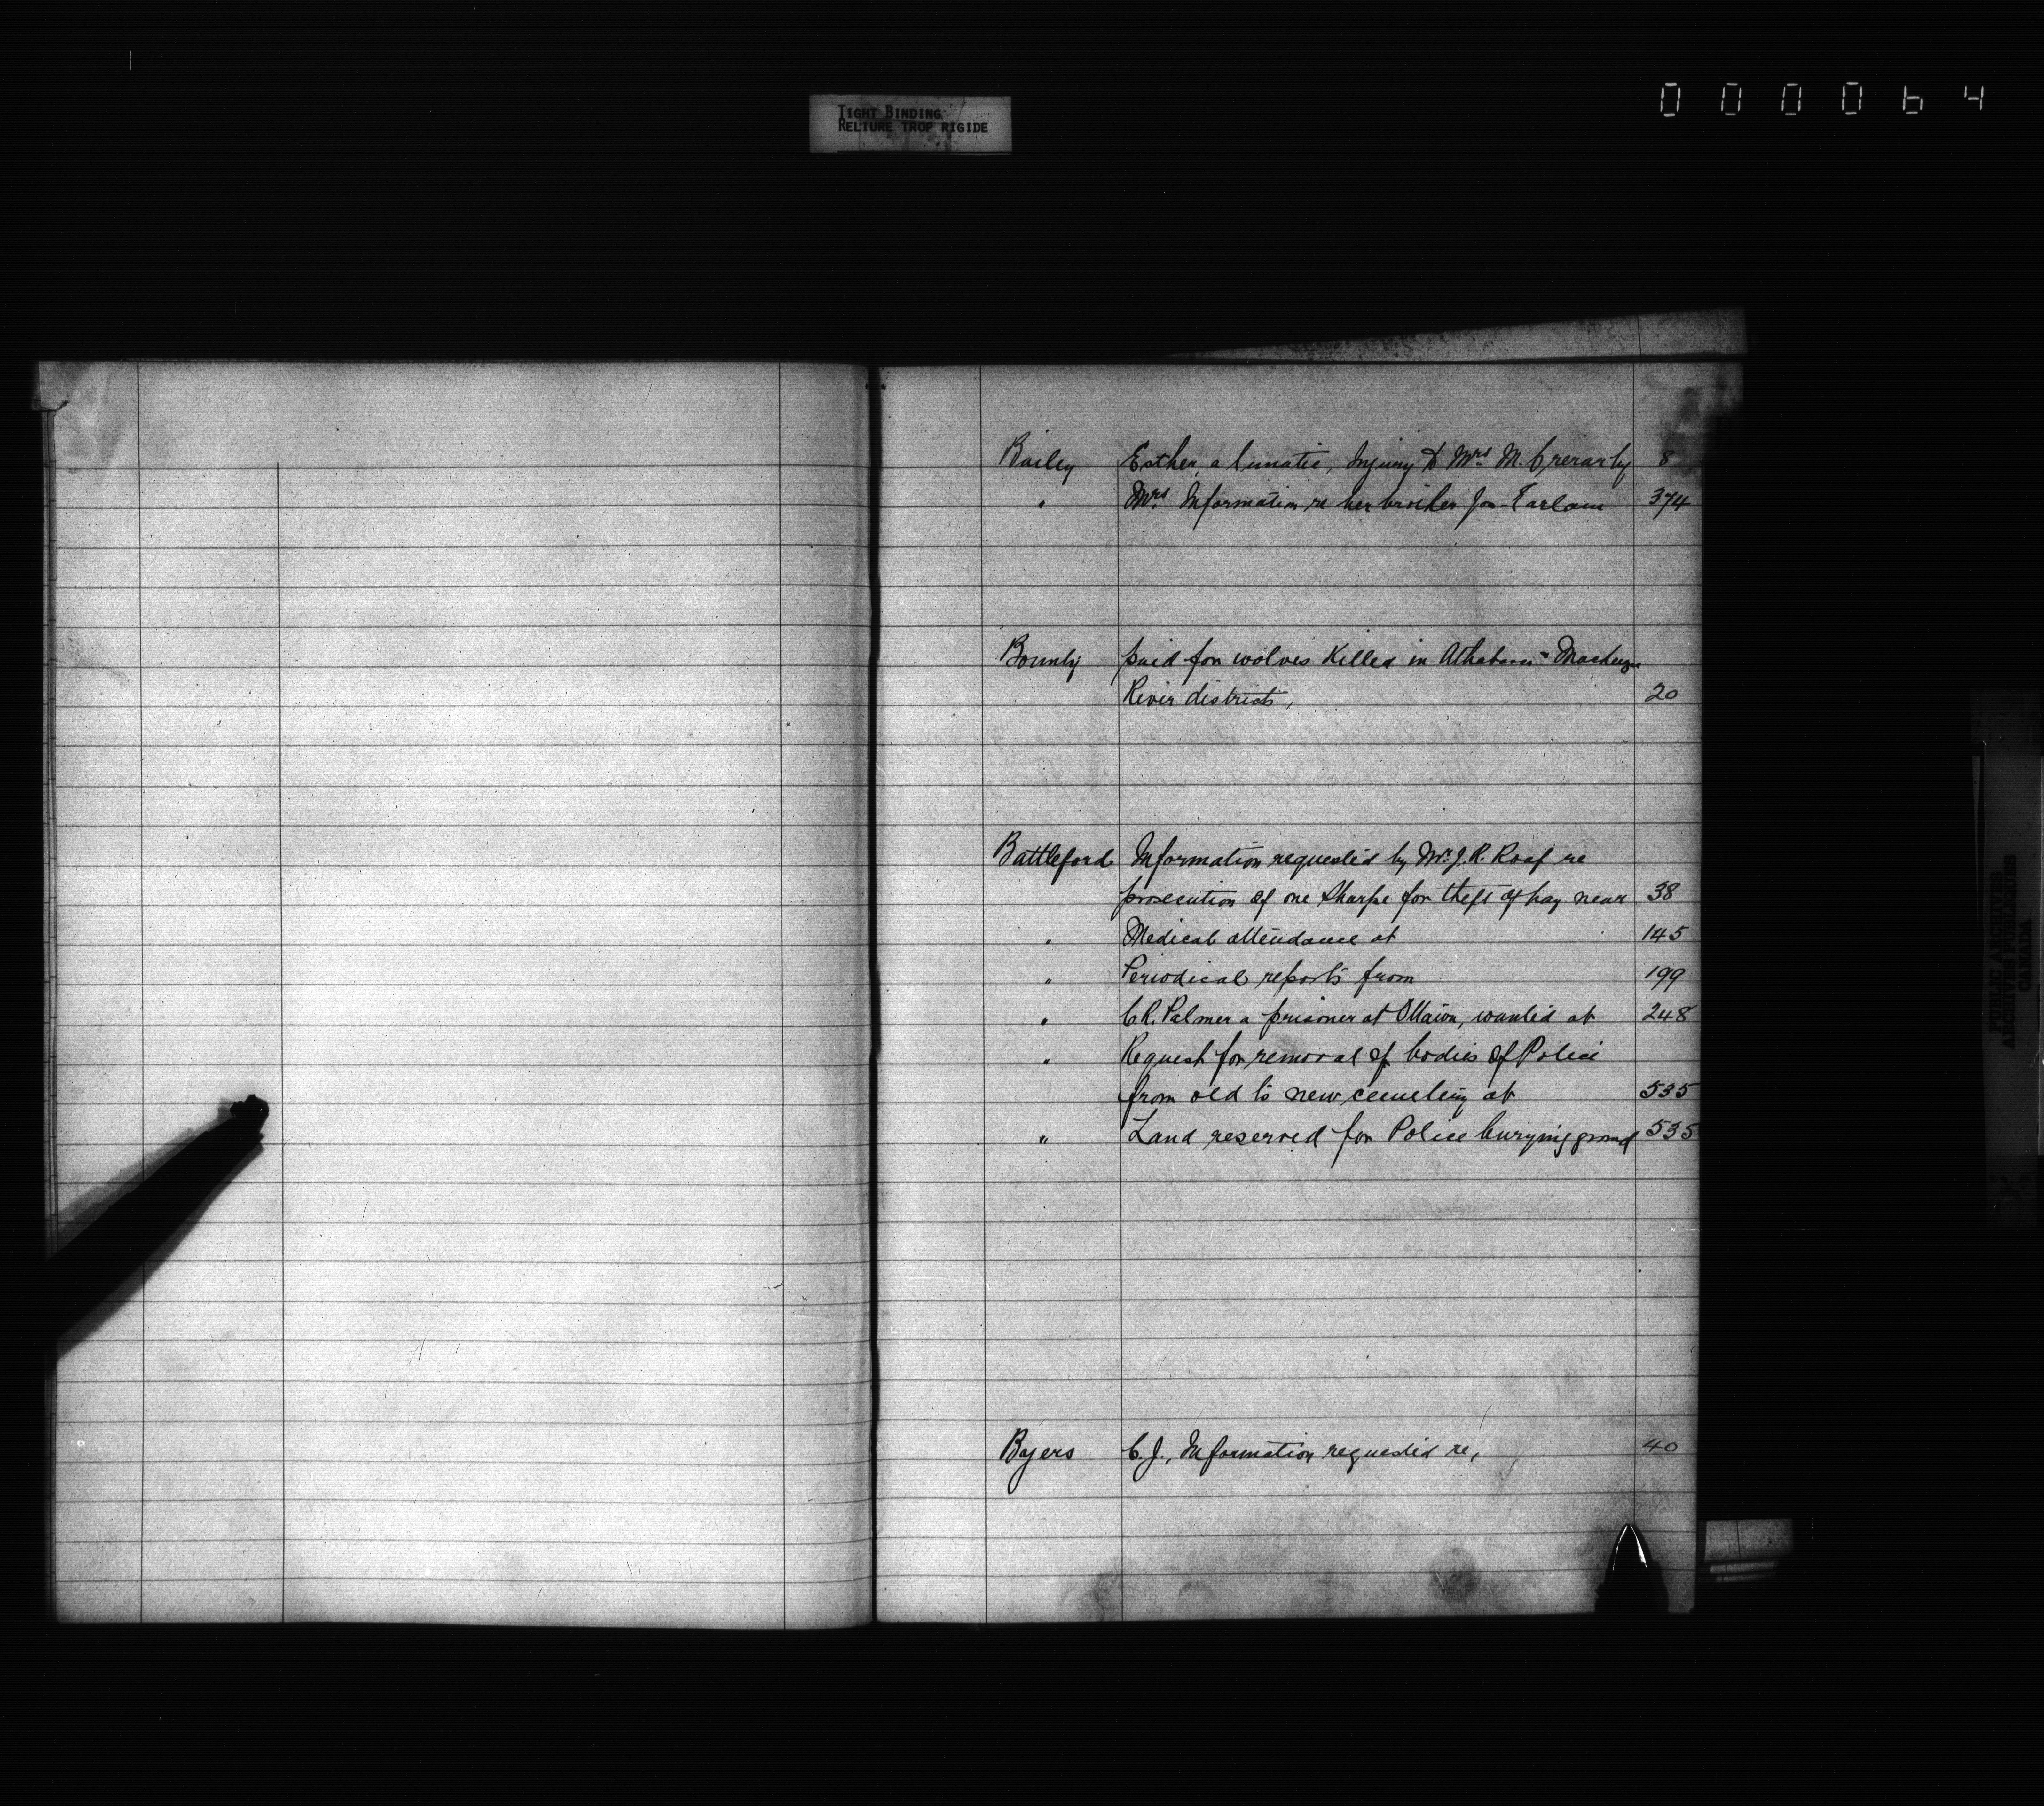 TIGHT BINDING
RELIURE TROP RIGIDE
000064
Bailey Esther, a lunatic, Injury to Mrs. M. Crerar by 8
" Mrs. Information re her brother Jon. 374
Bounty paid for wolves killed in Athabasca &
River districts, 20
Battleford Information requested by Mr. J. R. Roaf re
prosecution of one Sharpe for theft of hay near 38
" Medical attendance at 145
" Periodical reports from 199
" C.R. Palmer a prisoner at Ottawa, wanted at 248
" Request for removal of bodies of Police
from old to new cemetery at 535
" Land reserved for Police burying ground 535
Byers C. J., Information requested re, 40
PUBLIC ARCHIVES
ARCHIVES PUBLIQUES
CANADA